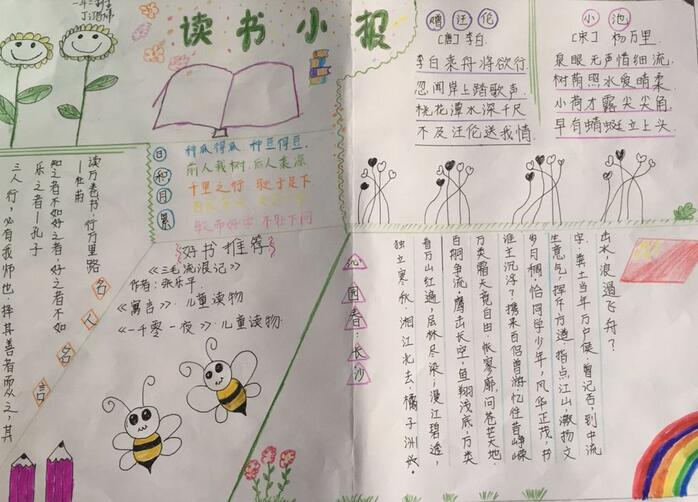 读书小报
日积月累
种瓜得瓜 种豆得豆.
前人栽树.后人乘凉
千里之行 始于足下
敏而好学 不耻下问
赠汪伦
[唐] 李白.
李白乘舟将欲行
忽闻岸上踏歌声
桃花潭水深千尺
不及汪伦送我情
小池
[宋] 杨万里
泉眼无声惜细流
树荫照水爱晴柔
小荷才露尖尖角
早有蜻蜓立上头
名人名言
读万卷书.行万里路
—杜甫
知之者不如好之者.好之者不如
乐之者—孔子
三人行,必有我师也.择其善者而从之,其
好书推荐
《三毛流浪记》
作者:张乐平.
《寓言》.儿童读物
《一千零一夜》.儿童读物.
沁园春·长沙
独立寒秋 湘江北去.橘子洲头.
看万山红遍,层林尽染;漫江碧透,
百舸争流.鹰击长空,鱼翔浅底,万类
万类霜天竞自由 怅寥廓,问苍茫大地.
谁主沉浮?携来百侣曾游.忆往昔峥嵘
岁月稠.恰同学少年,风华正茂;书
生意气,挥斥方遒.指点江山,激扬文
字.粪土当年万户侯 曾记否,到中流
击水,浪遏飞舟?